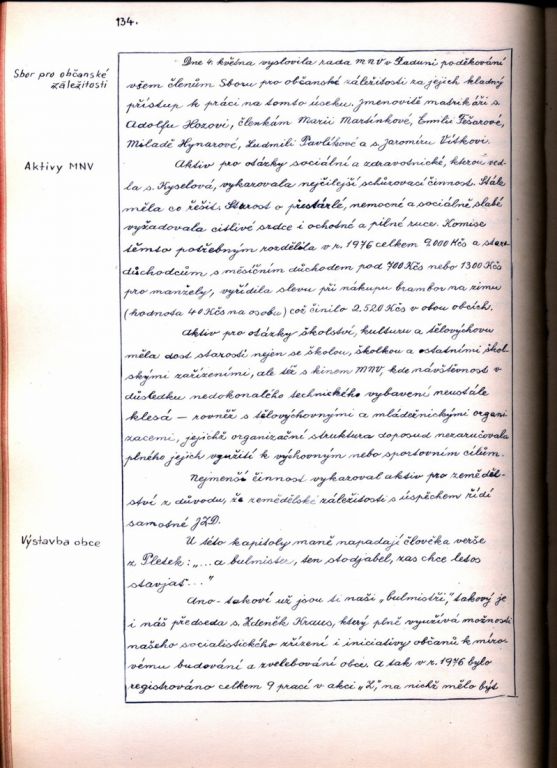 134.
Sbor pro občanské
záležitosti
Dne 4. května vyslovila rada MNV v Raduni poděkování
všem členům Sboru pro občanské záležitosti za jejich kladný
přístup k práci na tomto úseku. Jmenovitě matrikáři s.
Adolfu Hozovi, členkám Marii Martínkové, Emilii Tesarové,
Miladě Hynarové, Ludmile Pavlíkové a s. Jaromíru Vítkovi.
Aktivy MNV
Aktiv pro otázky sociální a zdravotnické, kterou ved-
la s. Kyselová, vykazovala nejčilejší schůzovací činnost. Stále
měla co řešit. Starost o přestárlé, nemocné a sociálně slabé
vyžadovala citlivé srdce i ochotné a pilné ruce. Komise
těmto potřebným rozdělila v r. 1976 celkem 9.000 Kčs a staro-
důchodcům s měsíčním důchodem pod 700 Kčs nebo 1300 Kčs
pro manžely, vyřídila slevu při nákupu brambor na zimu
(hodnota 40 Kčs na osobu) což činilo 2.520 Kčs v obou obcích.
Aktiv pro otázky školství, kulturu a tělovýchovu
měla dost starostí nejen se školou, školkou a ostatními škol-
skými zařízeními, ale též s kinem MNV, kde návštěvnost v
důsledku nedokonalého technického vybavení neustále
klesá — rovněž s tělovýchovnými a mládežnickými organi
zacemi, jejichž organizační struktura doposud nezaručovala
plného jejich využití k výchovným nebo sportovním cílům.
Nejmenší činnost vykazoval aktiv pro zeměděl-
ství z důvodu, že zemědělské záležitosti s úspěchem řídí
samotné JZD.
Výstavba obce
U této kapitoly maně napadají člověka verše
z Pletek: „...a bulmister, ten stodjabel, zas chce letos
stavjať..."
Ano - takoví už jsou ti naši „bulmistři", takový je
i náš předseda s. Zdeněk Kraus, který plně využívá možností
našeho socialistického zřízení i iniciativy občanů k míro-
vému budování a zvelebování obce. A tak v r. 1976 bylo
registrováno celkem 9 prací v akci „Z", na nichž mělo být